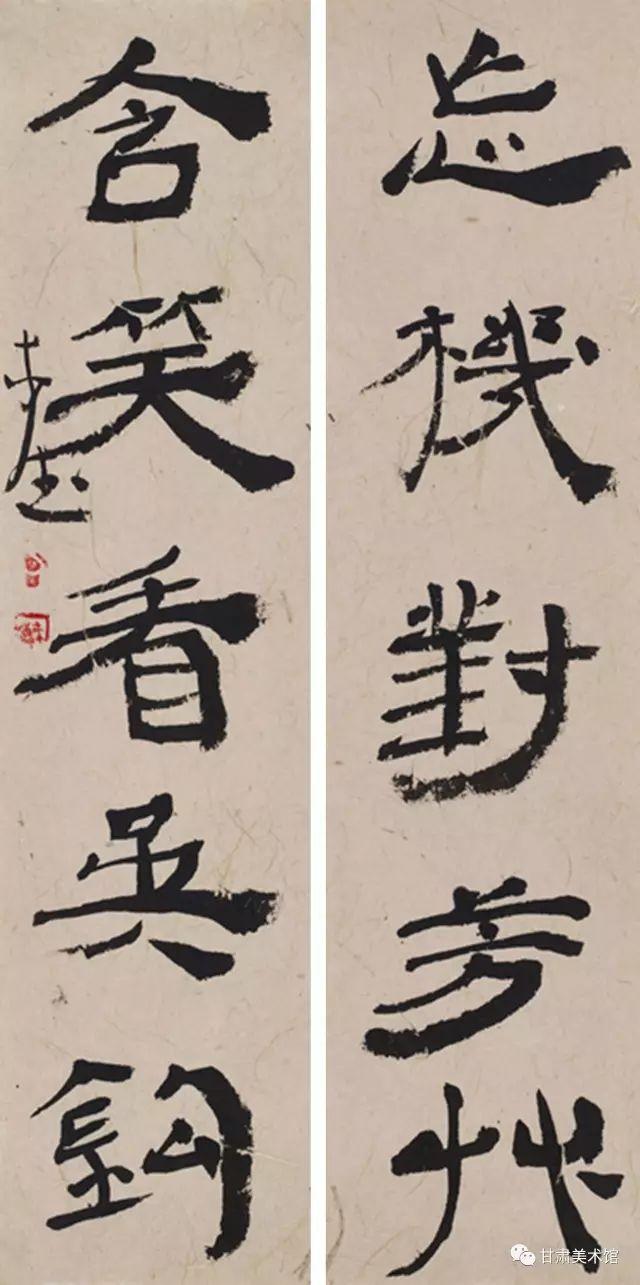 忘機對芳艸
含笑看吳鈎
甘肃美术馆